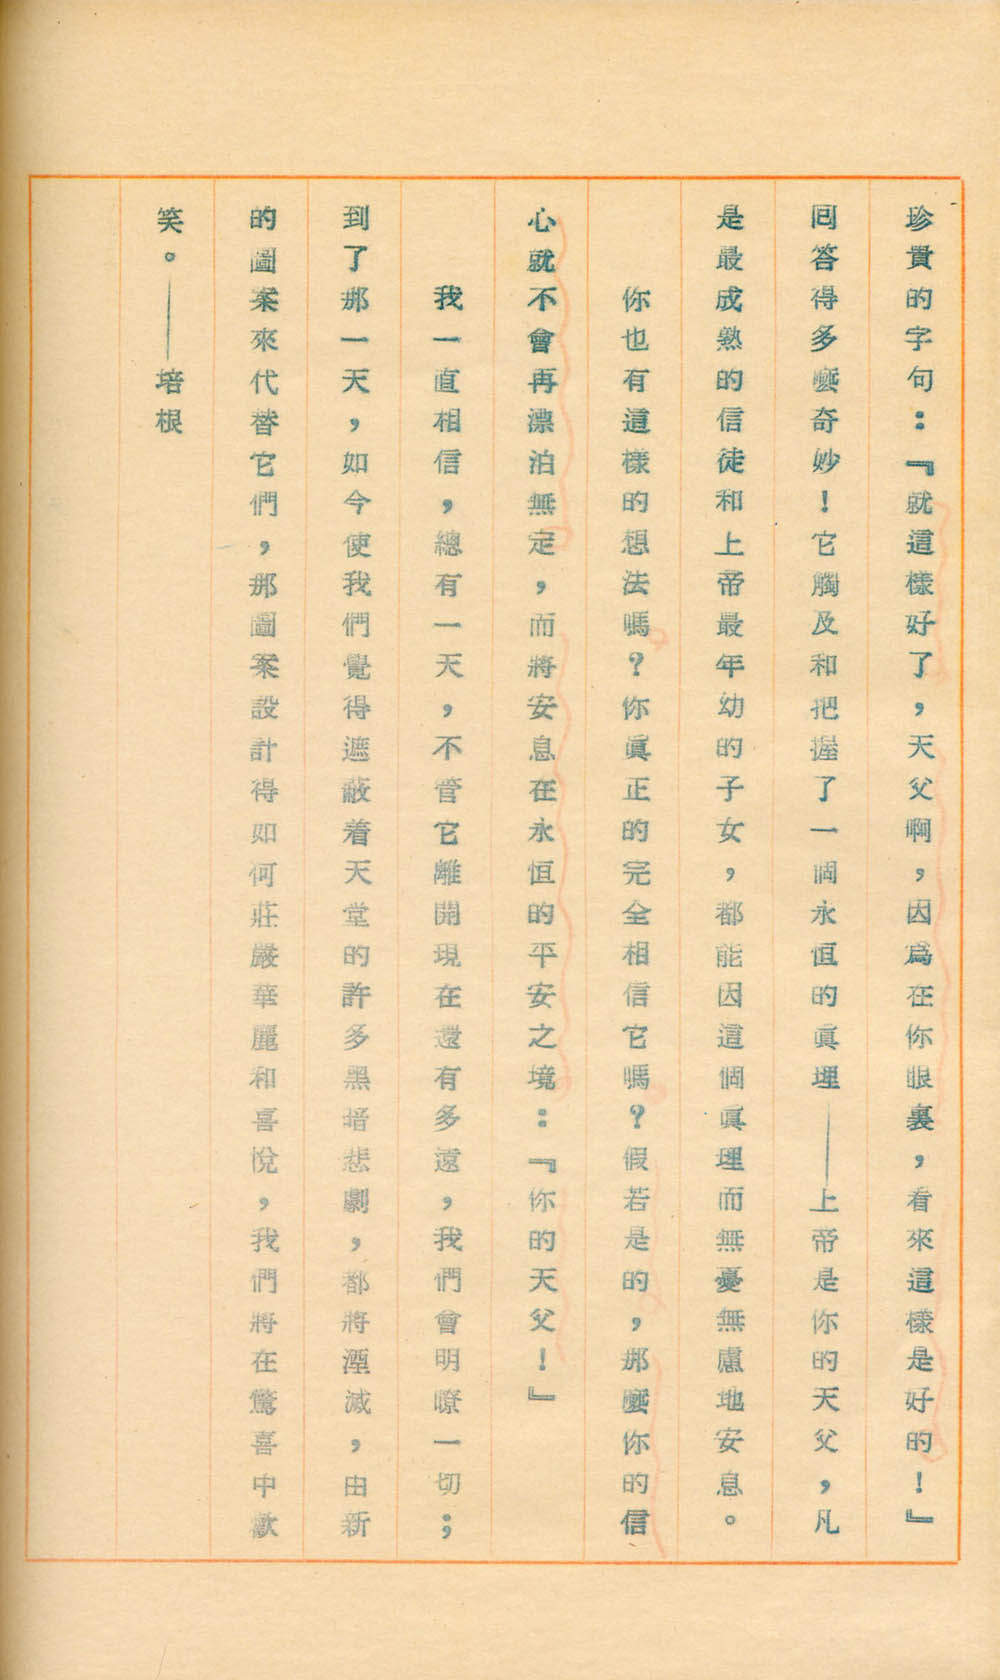 珍貴的字句：『就這樣好了，天父啊，因爲在你眼裏，看來這樣是好的！』
回答得多麼奇妙！它觸及和把握了一個永恒的眞理——上帝是你的天父，凡
是最成熟的信徒和上帝最年幼的子女，都能因這個眞理而無憂無慮地安息。
你也有這樣的想法嗎？你眞正的完全相信它嗎？假若是的，那麼你的信
心就不會再漂泊無定，而將安息在永恒的平安之境：『你的天父！』
我一直相信，總有一天，不管它離開現在還有多遠，我們會明瞭一切；
到了那一天，如今使我們覺得遮蔽着天堂的許多黑暗悲劇，都將湮滅，由新
的圖案來代替它們，那圖案設計得如何莊嚴華麗和喜悅，我們將在驚喜中歡
笑。——培根